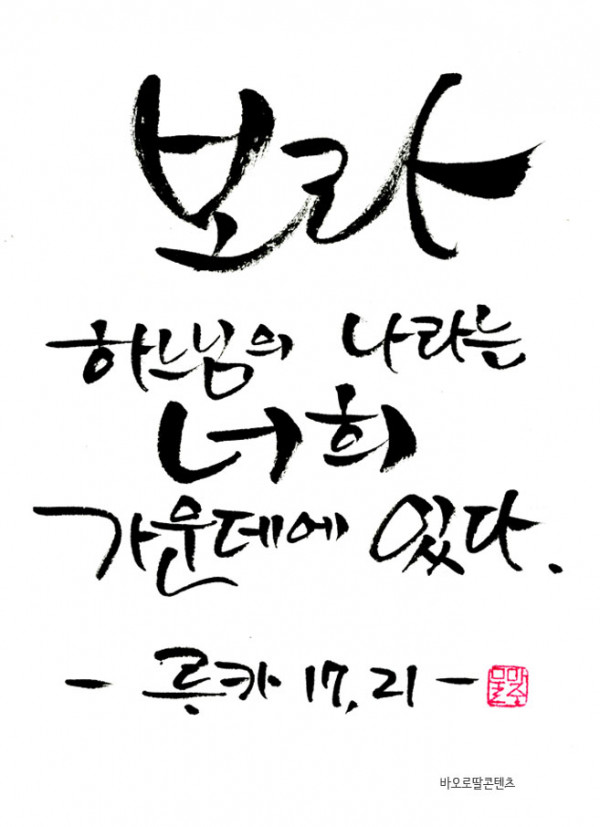 보라
하느님의 나라는
너희
가운데에 있다.
- 륵카 17, 21 -
바오로딸콘텐츠